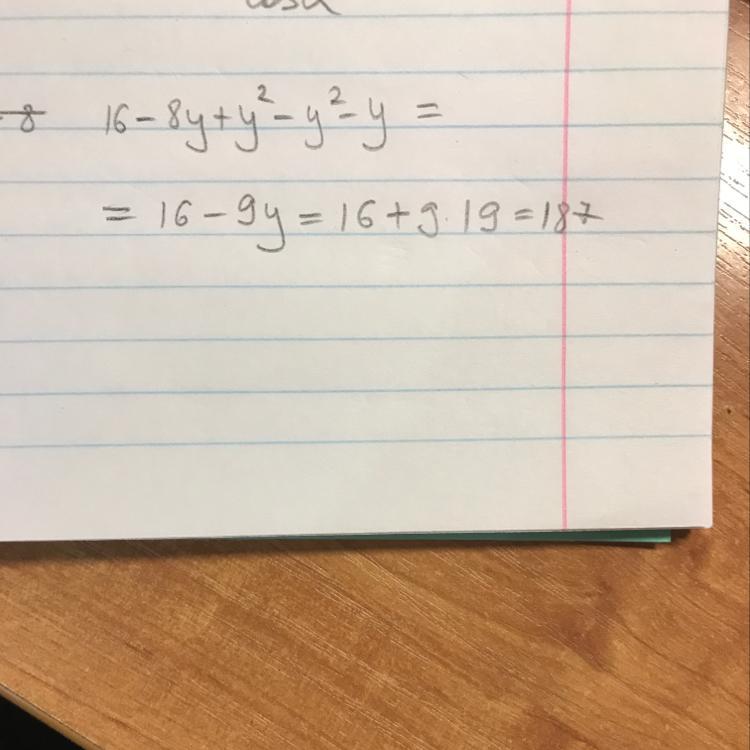 cosα
8 16 - 8y + y² - y² - y =
= 16 - 9y = 16 + 9 · 19 = 187